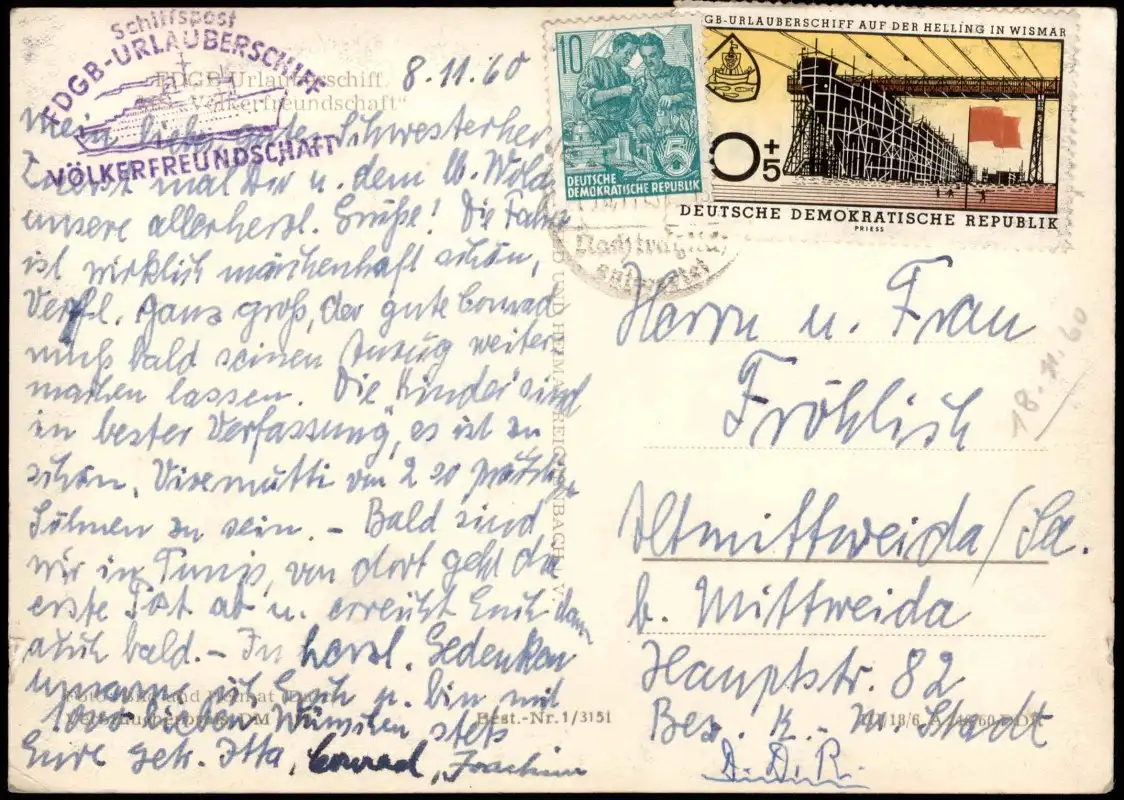 Schiffspost
FDGB-URLAUBERSCHIFF
VÖLKERFREUNDSCHAFT
FDGB-Urlauberschiff
MS „Völkerfreundschaft“
8.11.60
Mein liebes gutes Schwesterherz
Zuerst mal Dir u. dem lb.
unsere allerherzl. Grüße! Die Fahrt
ist wirklich märchenhaft schön,
Verfl. ganz groß, der gute Conrad
muß bald seinen Anzug weiter
machen lassen. Die Kinder sind
in bester Verfassung, es ist zu
schön, von 2 so
Söhnen zu sein. – Bald sind
wir in Tunis, von dort geht die
erste Post ab u. erreicht Euch dann
auch bald. – In herzl. Gedenken
umarme ich Euch u. bin mit
1000 lieben Wünschen stets
Eure getr. Conrad, Joachim
Best.-Nr. 1/3151
BILD UND HEIMAT REICHENBACH I. V.
10
5
DEUTSCHE
DEMOKRATISCHE REPUBLIK
GB-URLAUBERSCHIFF AUF DER HELLING IN WISMAR
0+5
DEUTSCHE DEMOKRATISCHE REPUBLIK
PRIESS
Herrn u. Frau
Fröhlich
18.11.60
Altmittweida/Sa.
b. Mittweida
Hauptstr. 82
Bez. K.-M.-Stadt
D.D.R.